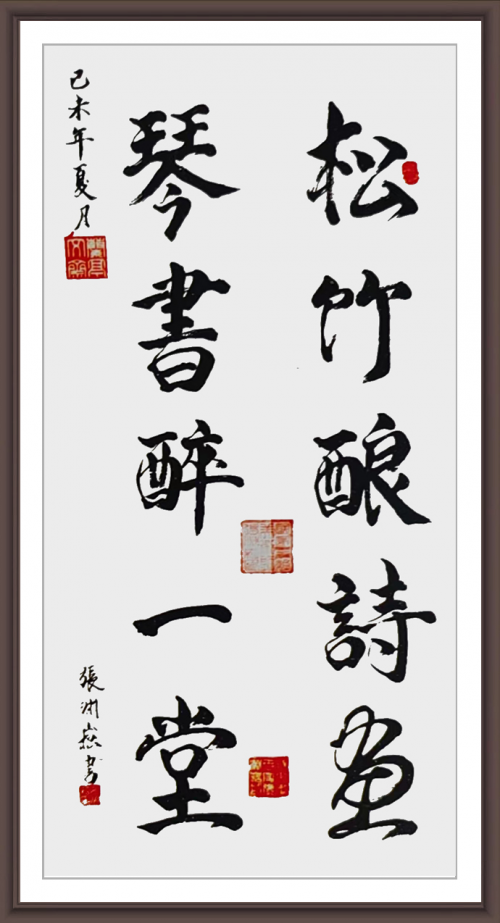 松竹酿詩畫
琴書醉一堂
己未年夏月
張
書